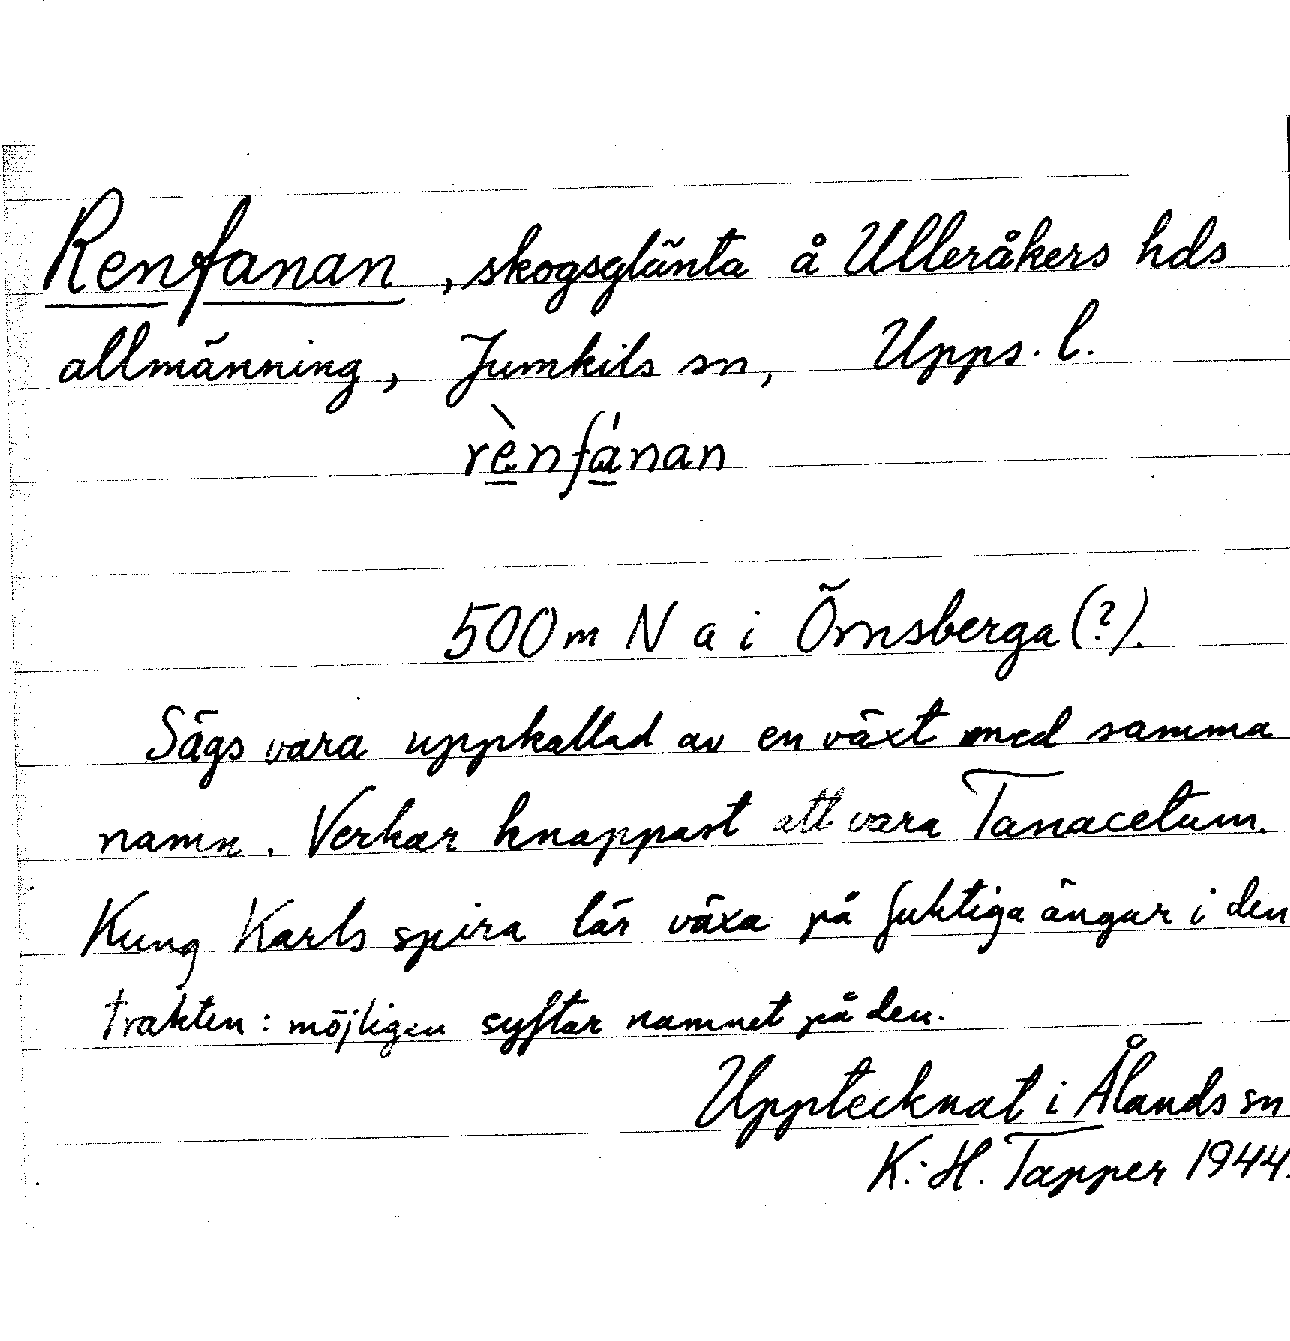 Renfanan, skogsglänta å Ulleråkers hds
allmänning, Jumkils sn, Upps. l.
rènfánan
500 m N a i Örnsberga (?).
Sägs vara uppkallad av en växt med samma
namn. Verkar knappast att vara Tanacetum.
Kung Karls spira lär växa på fuktiga ängar i den
trakten: möjligen syftar namnet på den.
Upptecknat i Ålands sn
K.-H. Tapper 1944.